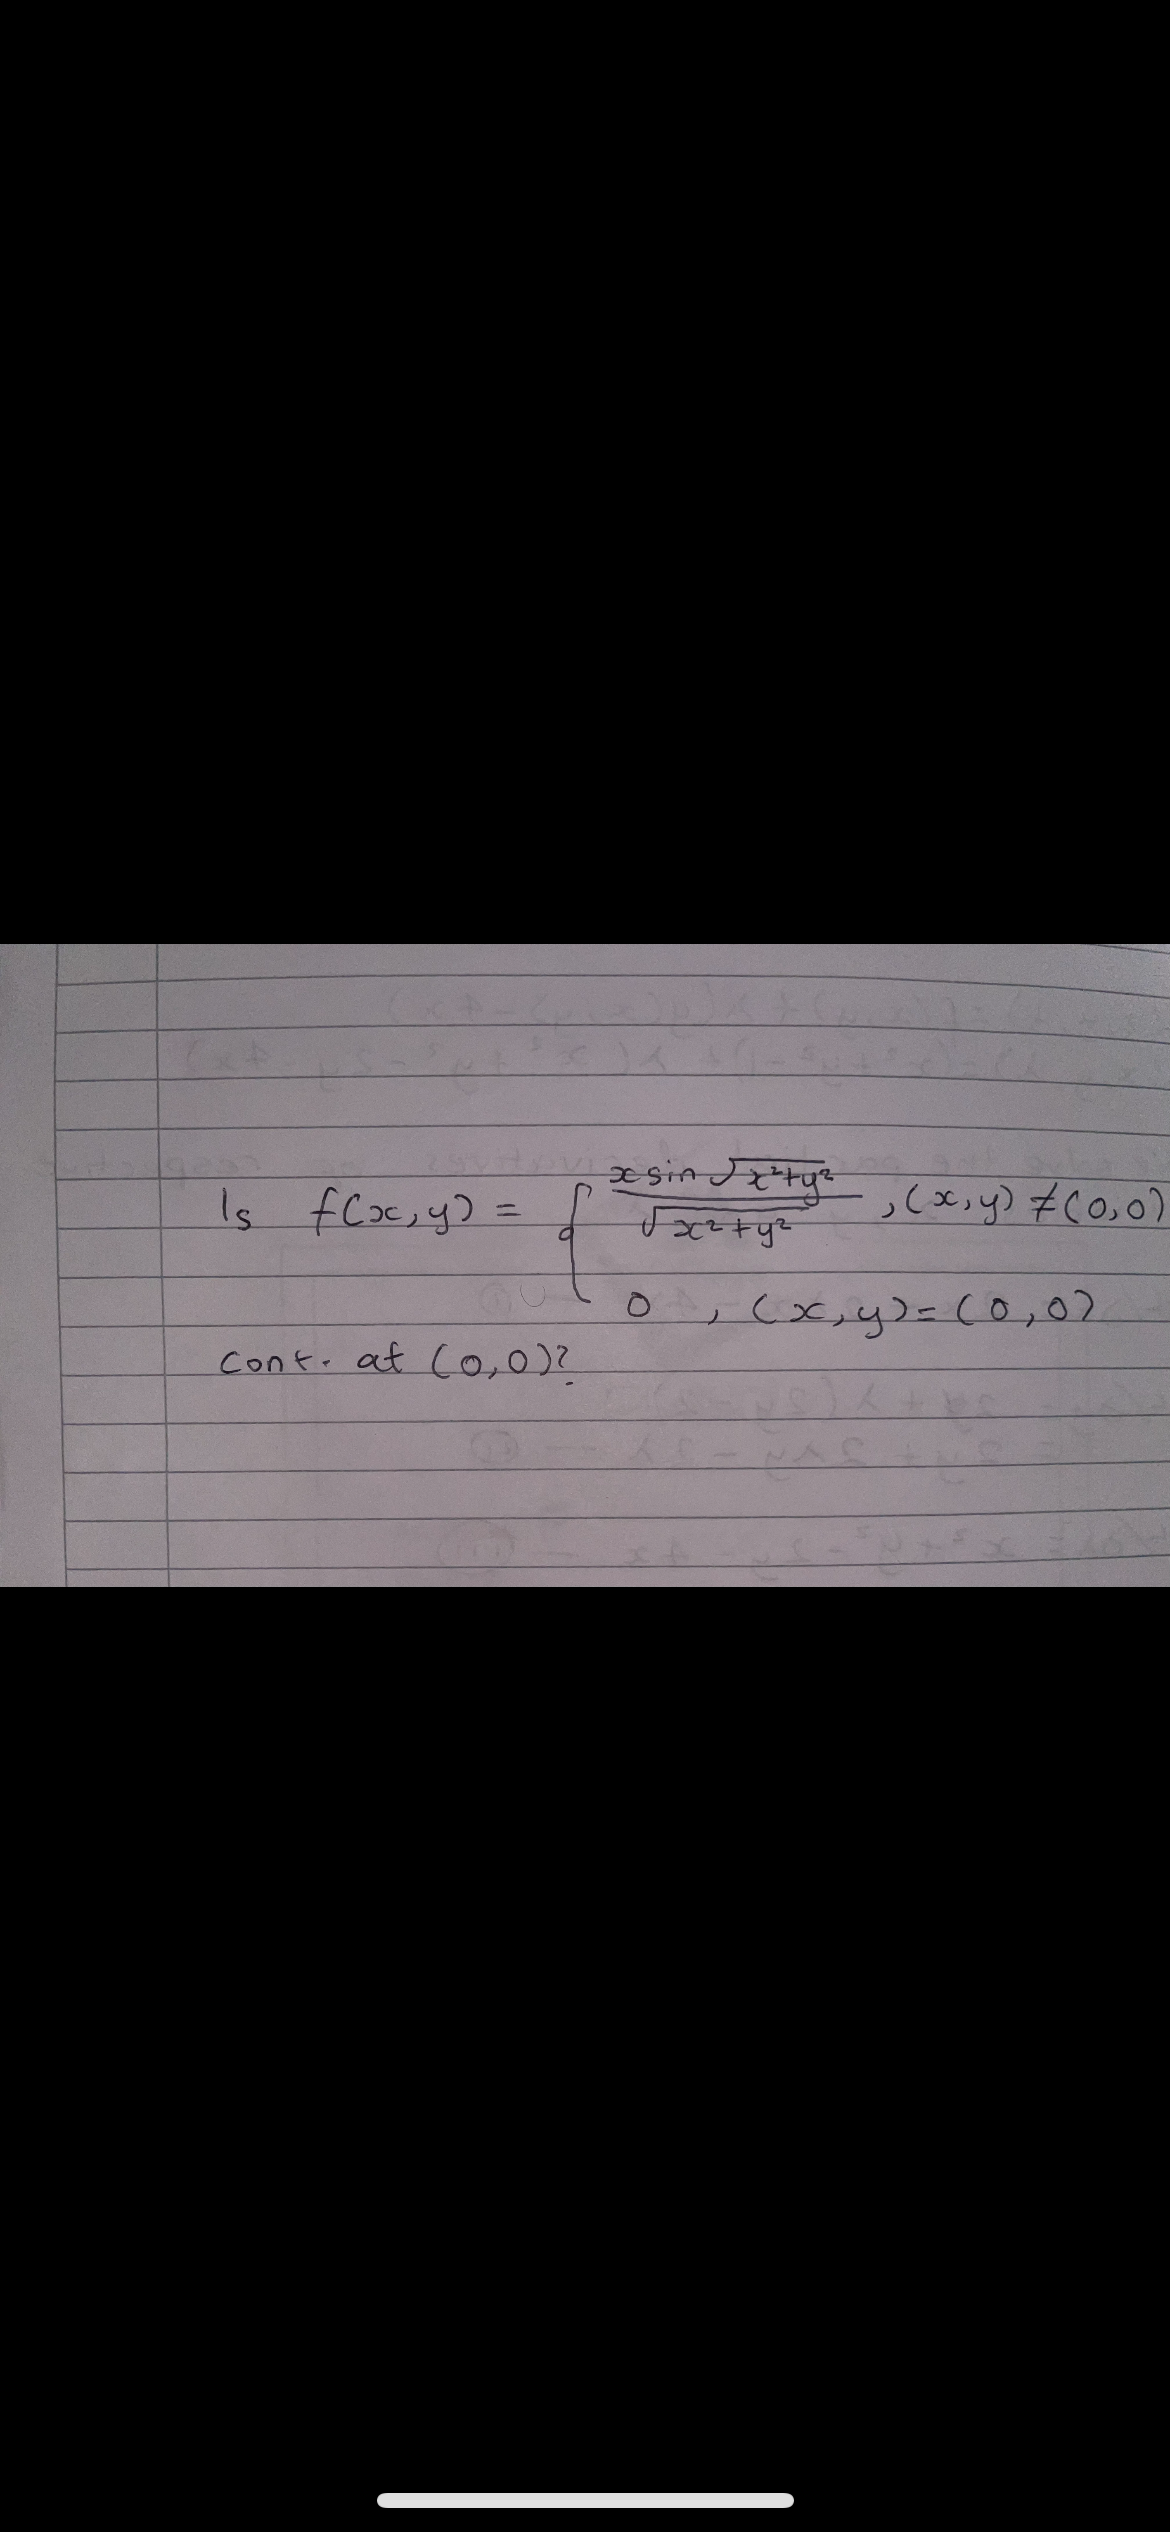 Is f(x,y) = { x sin √x²+y² / √x²+y² , (x,y) ≠ (0,0)
0 , (x,y) = (0,0)
cont. at (0,0)?